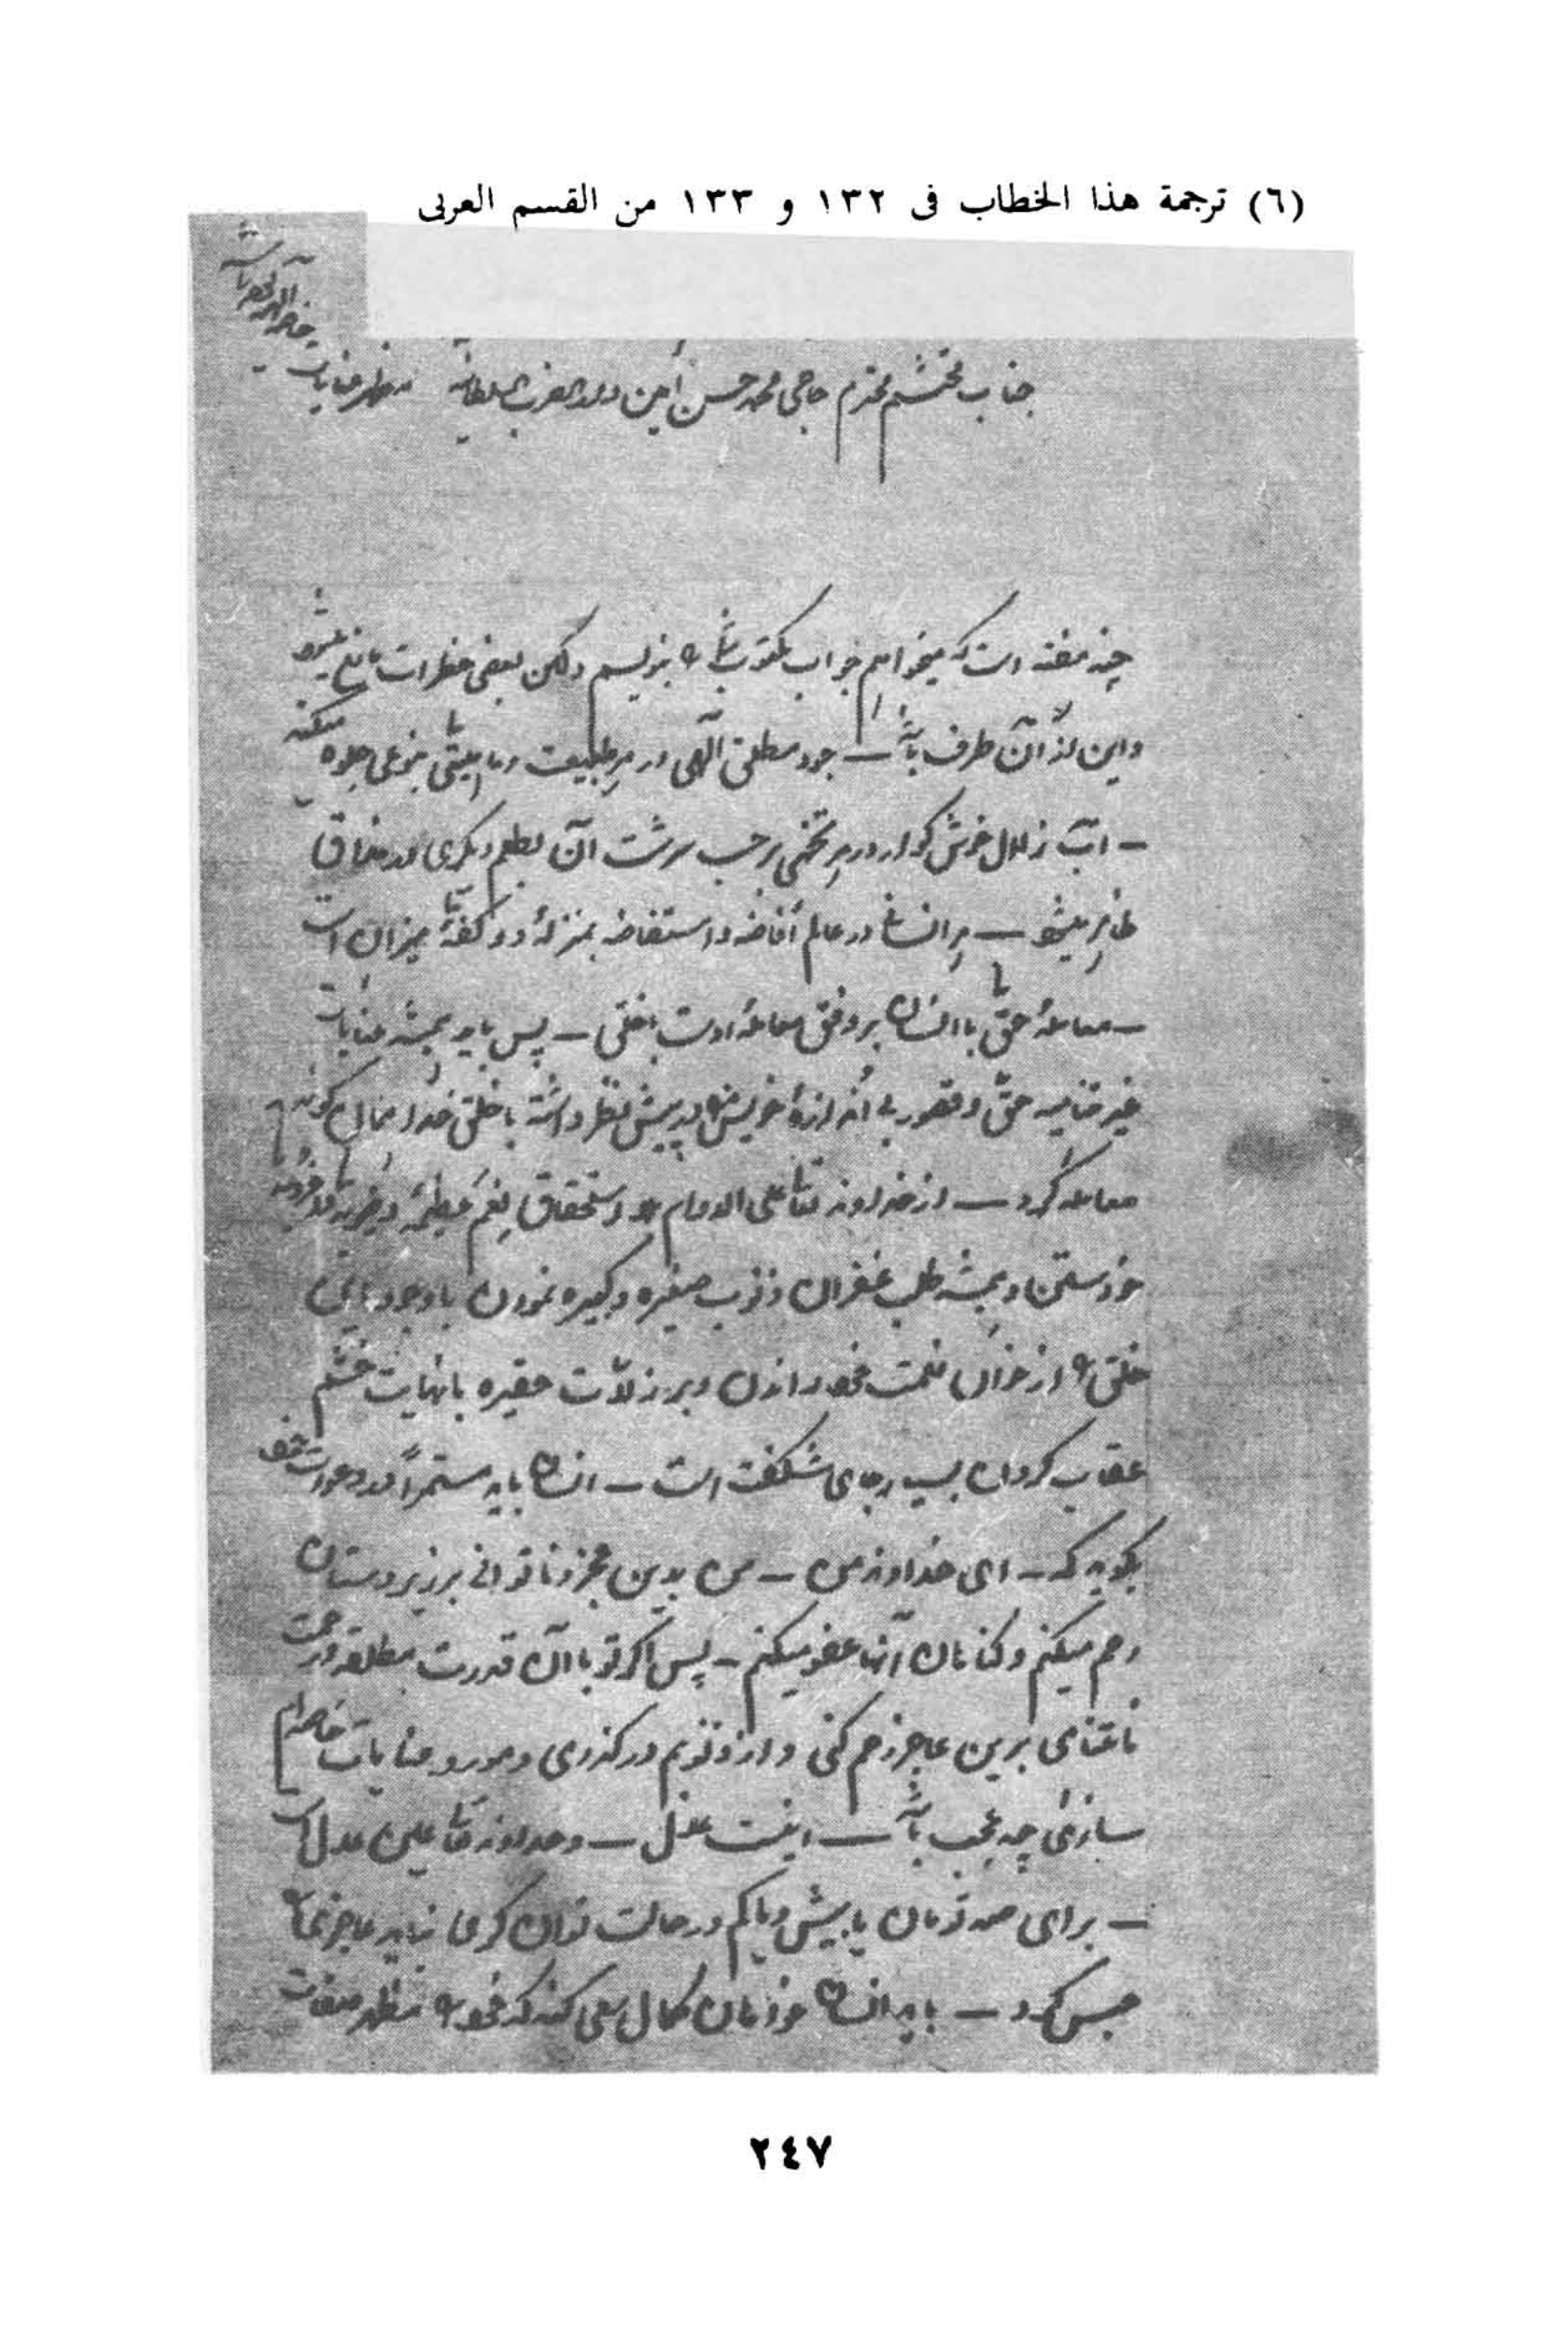 (٦) ترجمة هذا الخطاب فى ١٣٢ و ١٣٣ من القسم العربى
جناب محتشم محترم حاجی محمد حسن امین دارالضرب السلطانیه مظهر عنایات
خاصه الهیه باشد
چند هفته است که میخواهم جواب مکتوب شما را بنویسم ولکن بعضی خطرات مانع میشود
و این از آن طرف باشد – جود مطلق الهی در هر طبیعت و ماهیتی بنوعی جلوه میکند
– آب زلال خوش گوار در هر تخمی بر حسب سرشت آن بطعم دیگری در مذاق
ظاهر میشود – هر انسان در عالم افاضه و استفاضه بمنزلهٔ دو کفهٔ میزان است
– معاملهٔ حق با انسان بر وفق معاملهٔ اوست با خلق – پس باید همیشه عنایات
غیر متناهیه حق و قصور بی اندازهٔ خویش را در پیش نظر داشته با خلق خدا همان گونه
معامله کرد – از خداوند تعالی علی الدوام بلا استحقاق نعم عظیمه
خواستن و همیشه طلب غفران ذنوب صغیره و کبیره نمودن با وجود این
خلق را از خوان نعمت خود راندن و بر زلات حقیره با نهایت خشم
عقاب کردن بسیار جای شگفت است – انسان باید مستمراً در دعوات خود
بگوید که – ای خداوند من – من بدین عجز و ناتوانی بر زیردستان
رحم میکنم و گناهان آنها عفو میکنم – پس اگر تو با آن قدرت مطلقه و رحمت
نامتناهی برین عاجز رحم کنی و از ذنوبم درگذری و مورد عنایات خاصه ام
سازی چه عجب باشد – اینست عدل – و خداوند تعالی عین عدل است
– برای صد تومان یا بیش و یا کم در حالت توان گری نباید عاجزی را
حبس کرد – باید انسان خودمان کمال سعی کند که خود را مظهر صفات
٢٤٧